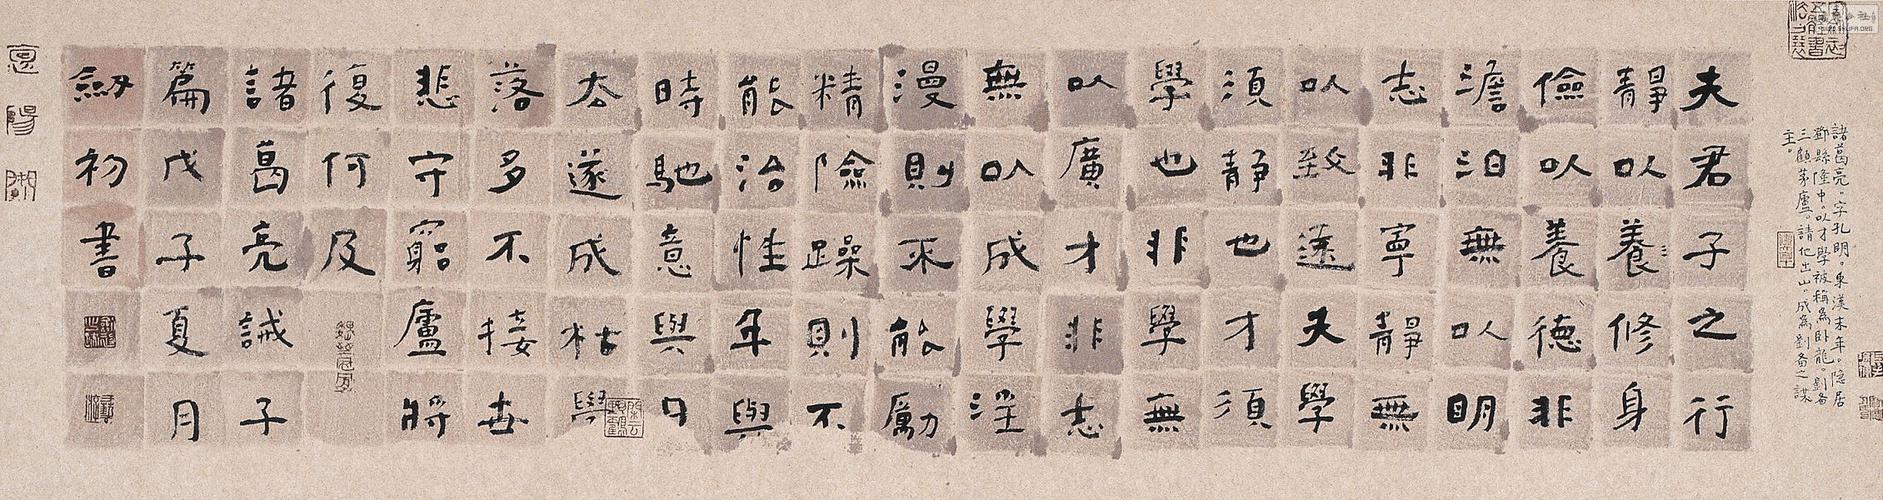 諸葛亮。字孔明。東漢末年。隱居
鄧縣隆中。以才學被稱為卧龍。劉備
三顧茅廬。請他出山。成為劉備之謀
主。
夫君子之行
靜以養修身
儉以養德非
澹泊無以明
志非寧靜無
以致遠夫學
須靜也才須
學也非學無
以廣才非志
無以成學淫
漫則不能勵
精險躁則不
能治性年與
時馳意與日
去遂成枯學
落多不接世
悲守窮廬將
復何及
諸葛亮誡子
篇戊子夏月
劔初書